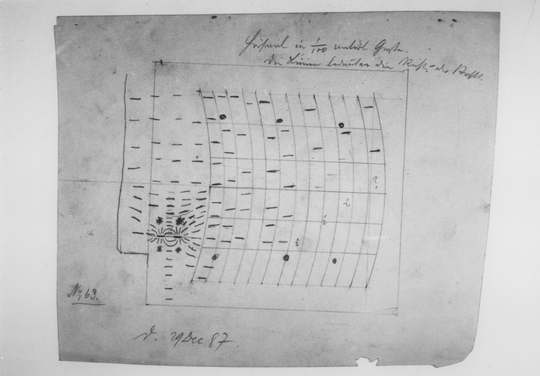 Hörsaal in 1/100 natürl. Größe.
Die Linien bedeuten die der Kraft.
No 63.
d. 29 Dec 87.